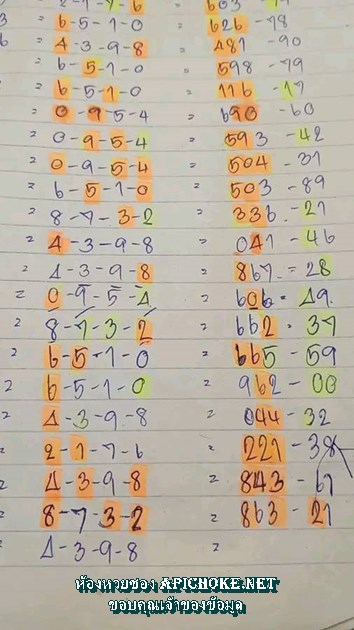 = 6-5-1-0 = 626-78
= 4-3-9-8 = 481-90
= 6-5-1-0 = 598-79
= 6-5-1-0 = 116-17
= 0-9-5-4 = 690-60
= 0-9-5-4 = 593-42
= 0-9-5-4 = 504-31
= 6-5-1-0 = 503-89
= 8-7-3-2 = 336-21
= 4-3-9-8 = 041-46
= 4-3-9-8 = 867=28
= 0-9-5-4 = 606-49
= 8-7-3-2 = 662-37
= 6-5-1-0 = 665-59
= 6-5-1-0 = 962-00
= 4-3-9-8 = 044-32
= 2-1-7-6 = 221-38
= 4-3-9-8 = 843-61
= 8-7-3-2 = 863-21
= 4-3-9-8 =
ห้องหวยซอง APICHOKE.NET
ขอบคุณเจ้าของข้อมูล